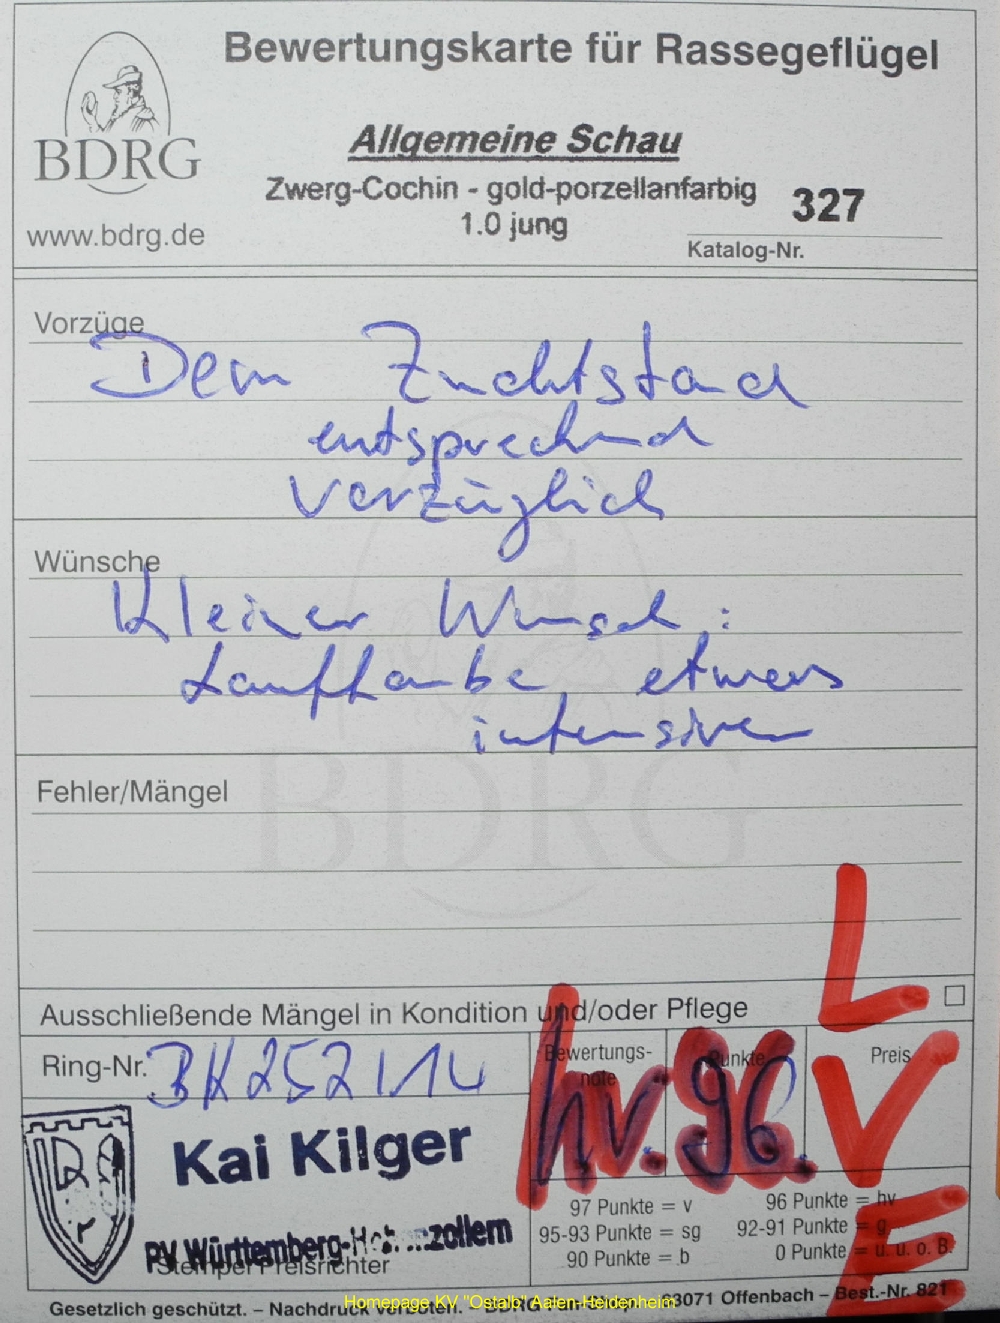 Bewertungskarte für Rassegeflügel
BDRG
www.bdrg.de
Allgemeine Schau
Zwerg-Cochin - gold-porzellanfarbig
1.0 jung
327
Katalog-Nr.
Vorzüge
Dem Zuchtstand
entsprechend
vorzüglich
Wünsche
Kleiner Wunsch:
Lauffarbe etwas
intensiver
BDRG
Fehler/Mängel
Ausschließende Mängel in Kondition und/oder Pflege
Ring-Nr. BK252 114
Bewertungs-
note
Punkte
Preis
hv. 96.
LVE
Kai Kilger
PV Württemberg-Hohenzollern
Stempel Preisrichter
97 Punkte = v
95-93 Punkte = sg
90 Punkte = b
96 Punkte = hv
92-91 Punkte = g
0 Punkte = u. u. o. B.
Gesetzlich geschützt. – Nachdruck verboten. 63071 Offenbach – Best.-Nr. 821
Homepage KV "Ostalb" Aalen-Heidenheim